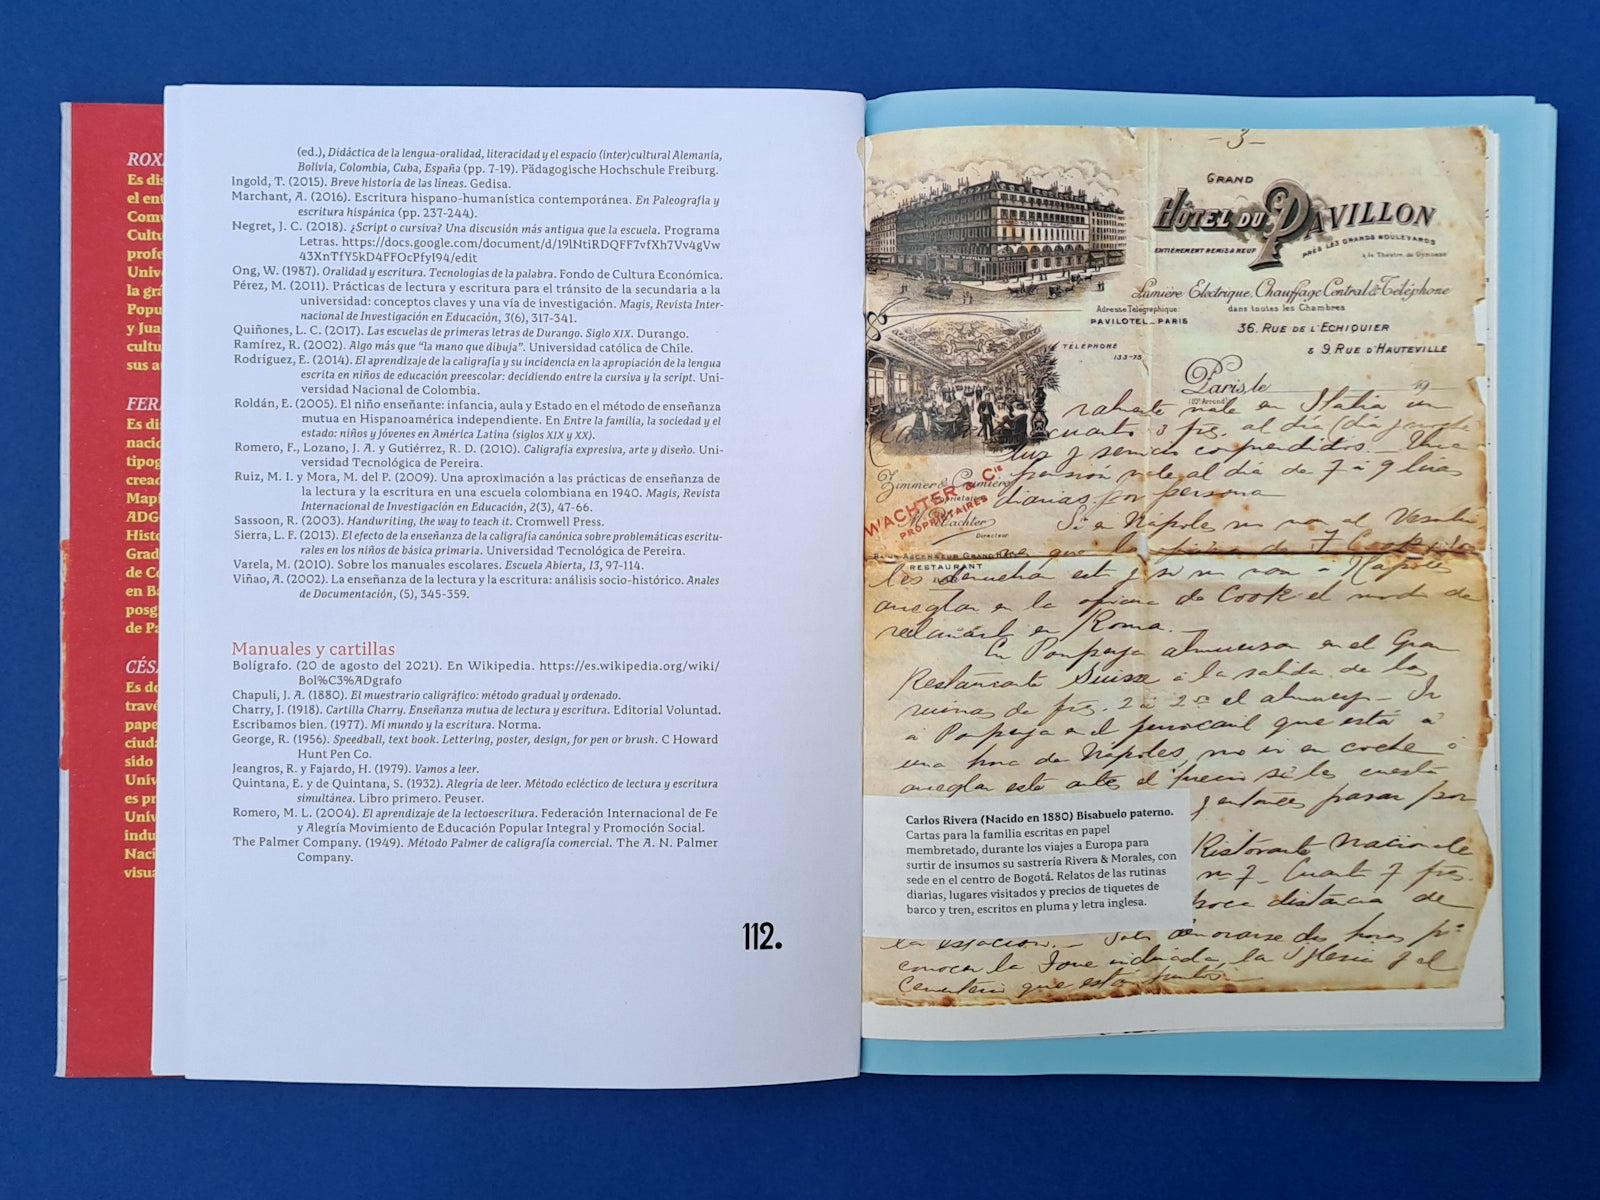 ROX
Es dis
el ent
Comu
Cultu
profe
Unive
la grá
Popu
y Jua
cultu
sus a
FER
Es di
nacio
tipog
creac
Mapi
ADG-
Histo
Grad
de Co
en Ba
posg
de Pa
CÉS
Es do
travé
pape
ciuda
sido
Univ
es pr
Univ
indu
Naci
visua
(ed.), Didáctica de la lengua-oralidad, literacidad y el espacio (inter)cultural Alemania,
Bolivia, Colombia, Cuba, España (pp. 7-19). Pädagogische Hochschule Freiburg.
Ingold, T. (2015). Breve historia de las líneas. Gedisa.
Marchant, A. (2016). Escritura hispano-humanística contemporánea. En Paleografía y
escritura hispánica (pp. 237-244).
Negret, J. C. (2018). ¿Script o cursiva? Una discusión más antigua que la escuela. Programa
Letras. https://docs.google.com/document/d/19lNtiRDQFF7vfXh7Vv4gVw
43XnTfY5kD4FFOcPfyI94/edit
Ong, W. (1987). Oralidad y escritura. Tecnologías de la palabra. Fondo de Cultura Económica.
Pérez, M. (2011). Prácticas de lectura y escritura para el tránsito de la secundaria a la
universidad: conceptos claves y una vía de investigación. Magis, Revista Inter-
nacional de Investigación en Educación, 3(6), 317-341.
Quiñones, L. C. (2017). Las escuelas de primeras letras de Durango. Siglo XIX. Durango.
Ramírez, R. (2002). Algo más que “la mano que dibuja”. Universidad católica de Chile.
Rodríguez, E. (2014). El aprendizaje de la caligrafía y su incidencia en la apropiación de la lengua
escrita en niños de educación preescolar: decidiendo entre la cursiva y la script. Uni-
versidad Nacional de Colombia.
Roldán, E. (2005). El niño enseñante: infancia, aula y Estado en el método de enseñanza
mutua en Hispanoamérica independiente. En Entre la familia, la sociedad y el
estado: niños y jóvenes en América Latina (siglos XIX y XX).
Romero, F., Lozano, J. A. y Gutiérrez, R. D. (2010). Caligrafía expresiva, arte y diseño. Uni-
versidad Tecnológica de Pereira.
Ruiz, M. I. y Mora, M. del P. (2009). Una aproximación a las prácticas de enseñanza de
la lectura y la escritura en una escuela colombiana en 1940. Magis, Revista
Internacional de Investigación en Educación, 2(3), 47-66.
Sassoon, R. (2003). Handwriting, the way to teach it. Cromwell Press.
Sierra, L. F. (2013). El efecto de la enseñanza de la caligrafía canónica sobre problemáticas escritu-
rales en los niños de básica primaria. Universidad Tecnológica de Pereira.
Varela, M. (2010). Sobre los manuales escolares. Escuela Abierta, 13, 97-114.
Viñao, A. (2002). La enseñanza de la lectura y la escritura: análisis socio-histórico. Anales
de Documentación, (5), 345-359.
Manuales y cartillas
Bolígrafo. (20 de agosto del 2021). En Wikipedia. https://es.wikipedia.org/wiki/
Bol%C3%ADgrafo
Chapuli, J. A. (1880). El muestrario caligráfico: método gradual y ordenado.
Charry, J. (1918). Cartilla Charry. Enseñanza mutua de lectura y escritura. Editorial Voluntad.
Escribamos bien. (1977). Mi mundo y la escritura. Norma.
George, R. (1956). Speedball, text book. Lettering, poster, design, for pen or brush. C Howard
Hunt Pen Co.
Jeangros, R. y Fajardo, H. (1979). Vamos a leer.
Quintana, E. y de Quintana, S. (1932). Alegría de leer. Método ecléctico de lectura y escritura
simultánea. Libro primero. Peuser.
Romero, M. L. (2004). El aprendizaje de la lectoescritura. Federación Internacional de Fe
y Alegría Movimiento de Educación Popular Integral y Promoción Social.
The Palmer Company. (1949). Método Palmer de caligrafía comercial. The A. N. Palmer
Company.
112.
-3-
GRAND
HÔTEL DU PAVILLON
ENTIÈREMENT REMIS À NEUF
PRÈS LES GRANDS BOULEVARDS
& le Théâtre du Gymnase
Lumière Electrique, Chauffage Central & Téléphone
dans toutes les Chambres
Adresse Télégraphique:
PAVILOTEL_PARIS
36. RUE DE L'ECHIQUIER
& 9. RUE D'HAUTEVILLE
TÉLÉPHONE
133-75
Paris, le 19
(10e Arrondt)
vale en Italia un
cuarto 3 frs. al día (día y noche
luz y servicio comprendidos. Una
pensión vale al día de 7 a 9 liras
diarias por persona
Zimmer & Cie
Propriétaires
WACHTER & Cie
PROPRIÉTAIRES
M. Wachter
Directeur
Si en Nápoles no van al Vesubio
RESTAURANT
arreglar en la oficina de Cook el modo de
en Roma.
En Pompeya almuerzan en el Gran
Restaurante Suisse a la salida de las
ruinas de frs. el
a Pompeya en el ferrocarril que está a
una hora de Nápoles, no ir en coche o
arreglar este antes el precio si les cuesta
y entonces pasar por
Carlos Rivera (Nacido en 1880) Bisabuelo paterno.
Cartas para la familia escritas en papel
membretado, durante los viajes a Europa para
surtir de insumos su sastrería Rivera & Morales, con
sede en el centro de Bogotá. Relatos de las rutinas
diarias, lugares visitados y precios de tiquetes de
barco y tren, escritos en pluma y letra inglesa.
Ristorante Nacionale
Cuarto 7 frs.
poca distancia de
la estación. Solo demorarse dos horas
conocer la Torre inclinada, la Iglesia y el
Cementerio que están juntos.